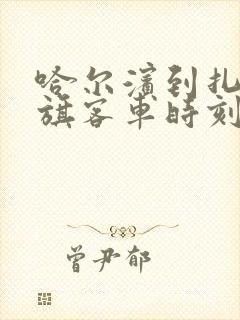 哈尔滨到扎
旗客车时刻
曾尹郁